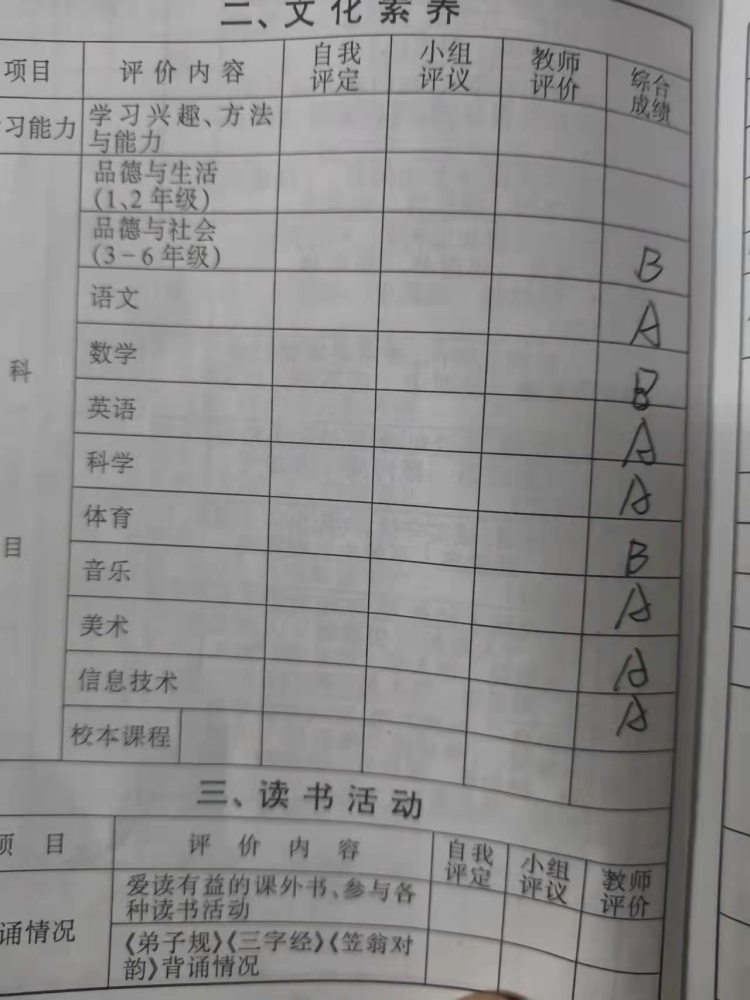 二、文化素养
项目 评价内容 自我评定 小组评议 教师评价 综合成绩
习能力 学习兴趣、方法
与能力
品德与生活
(1、2年级)
品德与社会
(3-6年级) B
语文 A
数学 B
科
英语 A
科学 A
体育 B
目
音乐 A
美术 A
信息技术 A
校本课程
三、读书活动
项目 评价内容 自我评定 小组评议 教师评价
爱读有益的课外书、参与各
种读书活动
诵情况
《弟子规》《三字经》《笠翁对
韵》背诵情况